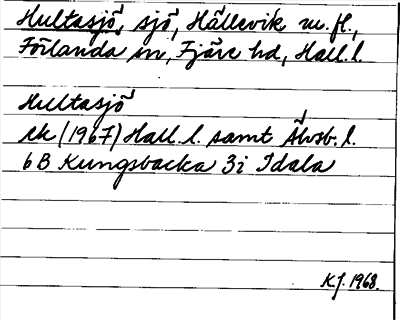 Hultasjö, sjö, Hällevik m.fl.,
Förlanda sn, Fjäre hd, Hall.l.
Hultasjö
ek (1967) Hall.l. samt Älvsb.l.
6B Kungsbacka 3i Idala
KJ. 1968.